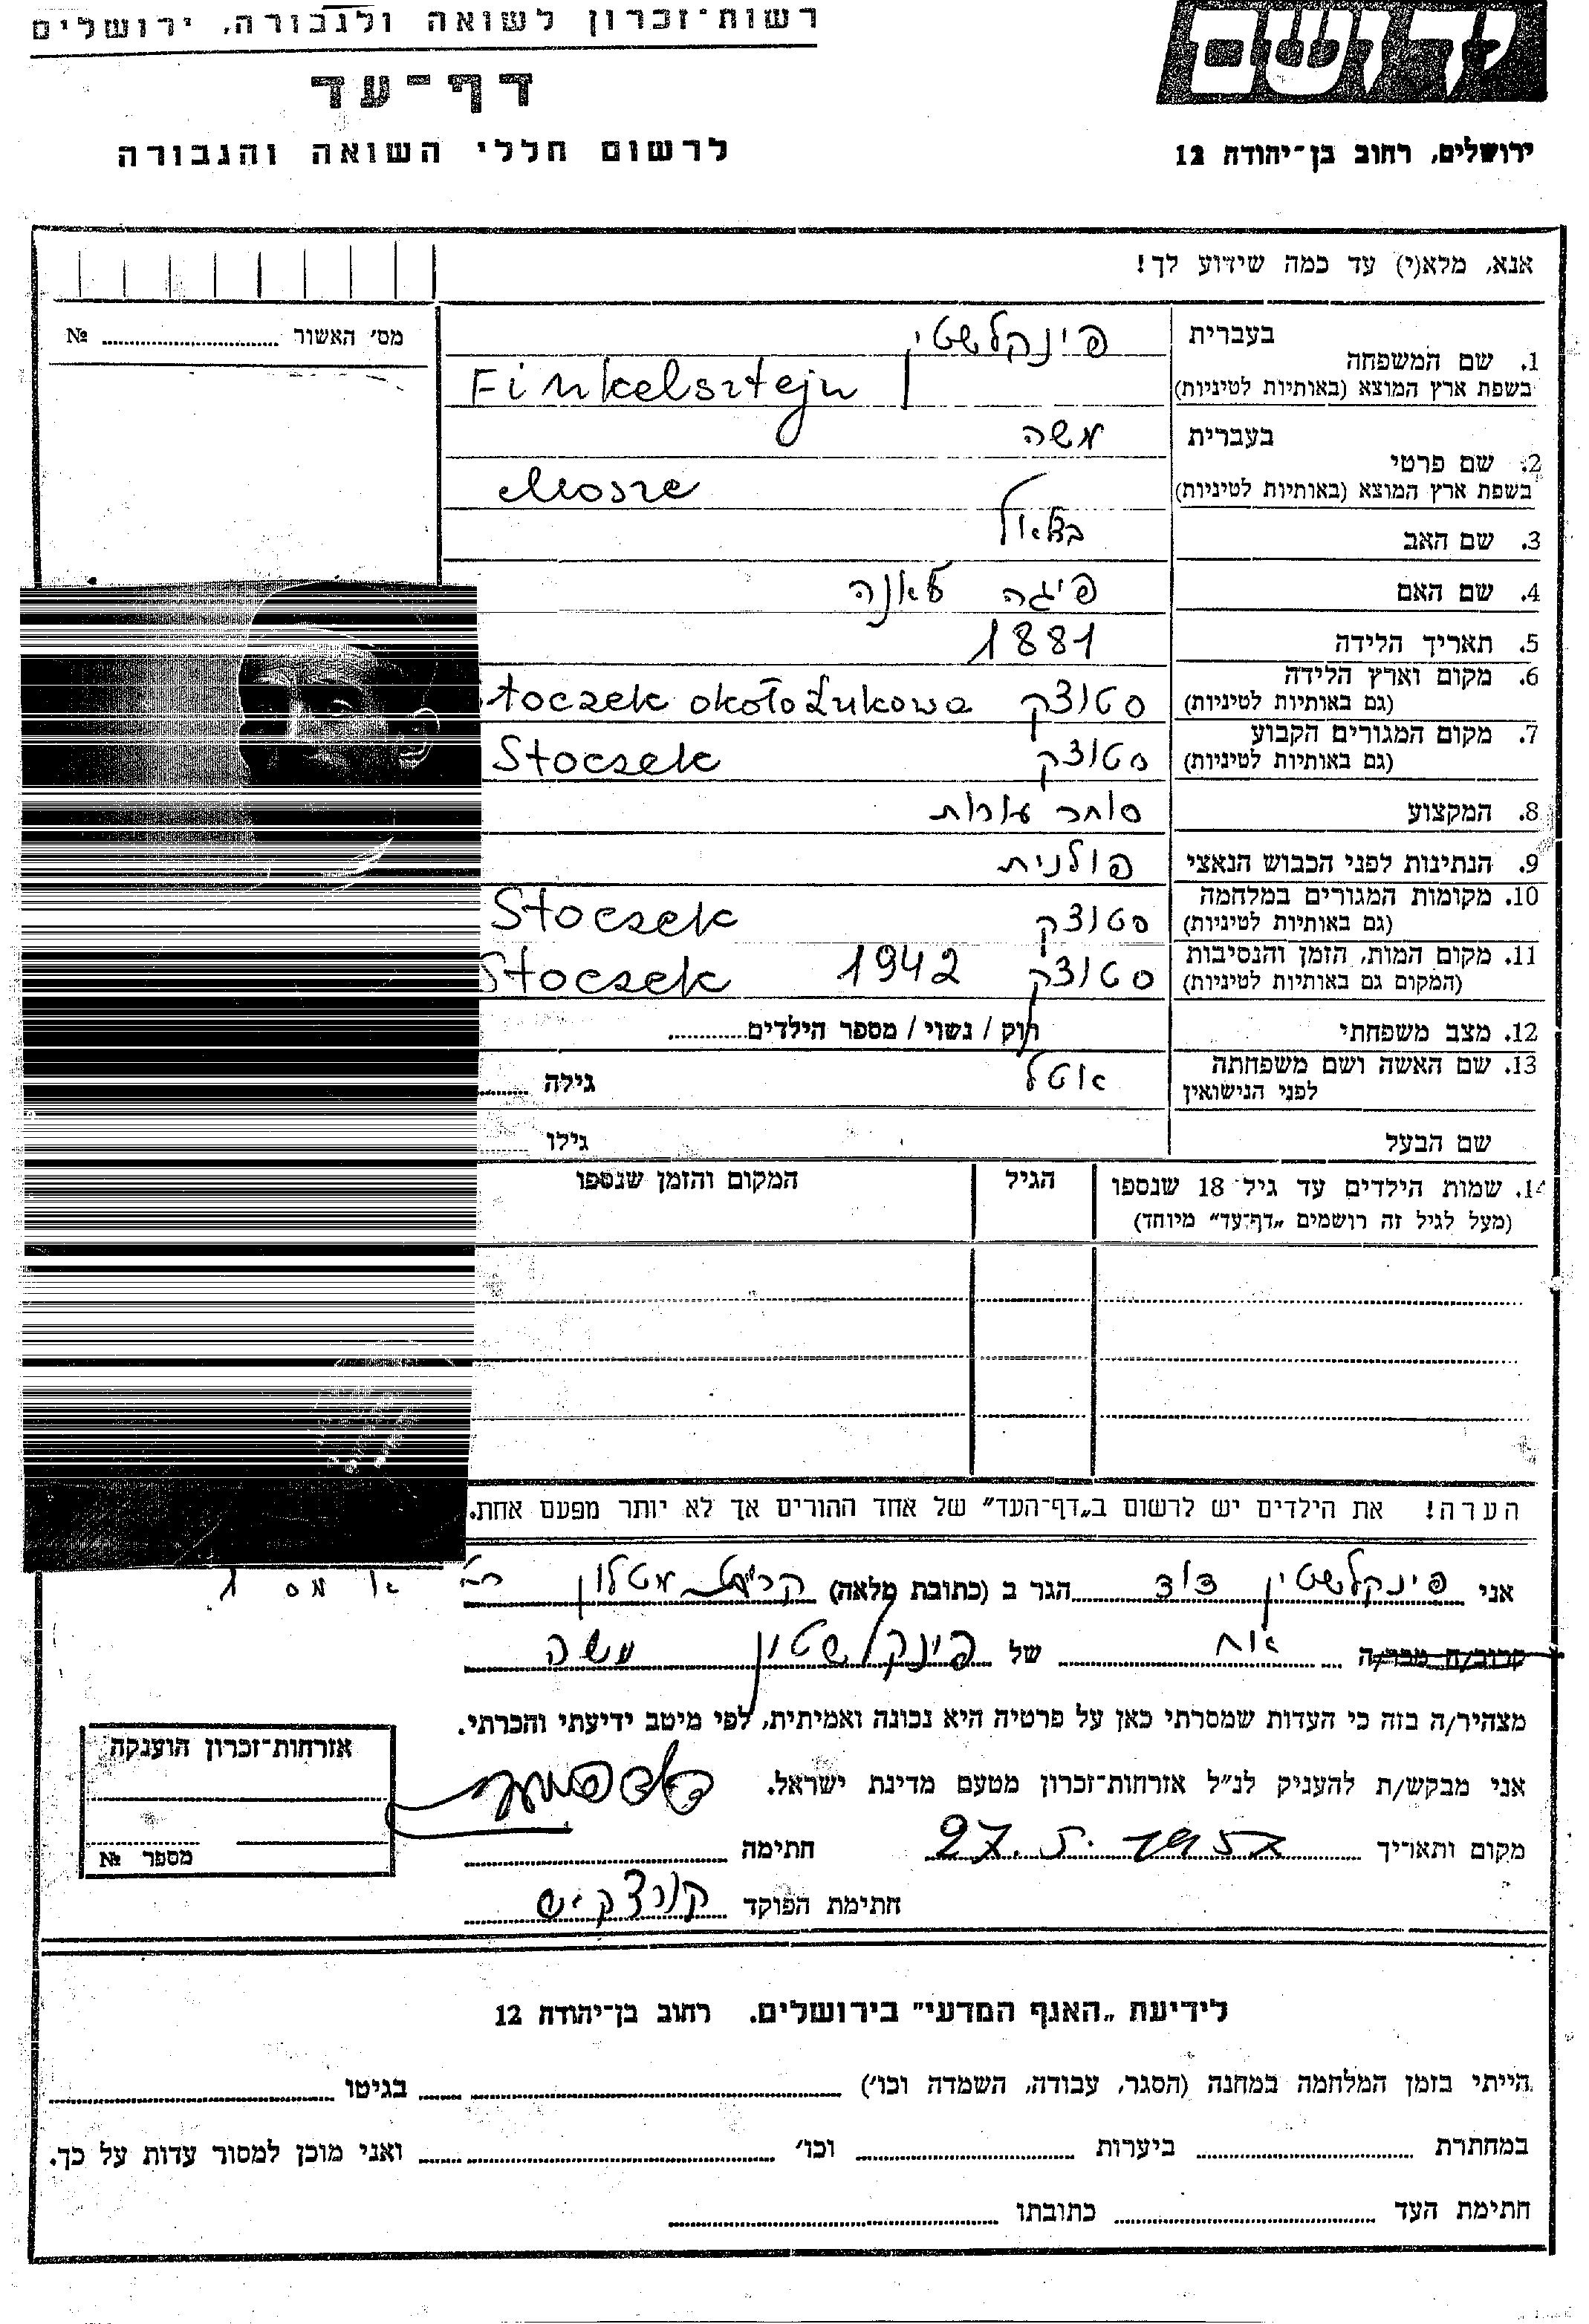 רשות־זכרון לשואה ולגבורה, ירושלים
דף־עד
לרשום חללי השואה והגבורה
ירושלים, רחוב בן־יהודה 12
אנא, מלא(י) עד כמה שידוע לך!
מס׳ האשור № 
1. שם המשפחה בעברית פינקלשטין
בשפת ארץ המוצא (באותיות לטיניות) Finkelsztejn
2. שם פרטי בעברית משה
בשפת ארץ המוצא (באותיות לטיניות) Mosze
3. שם האב
4. שם האם פיגה
5. תאריך הלידה 1881
6. מקום וארץ הלידה (גם באותיות לטיניות) סטוצק Stoczek około Łukowa
7. מקום המגורים הקבוע (גם באותיות לטיניות) סטוצק Stoczek
8. המקצוע סוחר עורות
9. הנתינות לפני הכבוש הנאצי פולנית
10. מקומות המגורים במלחמה (גם באותיות לטיניות) סטוצק Stoczek
11. מקום המות, הזמן והנסיבות (המקום גם באותיות לטיניות) סטוצק 1942 Stoczek
12. מצב משפחתי רוק / נשוי / מספר הילדים
13. שם האשה ושם משפחתה לפני הנישואין אטל גילה
שם הבעל גילו
14. שמות הילדים עד גיל 18 שנספו הגיל המקום והזמן שנספו
(מעל לגיל זה רושמים „דף־עד” מיוחד)
הערה! את הילדים יש לרשום ב„דף־העד” של אחד ההורים אך לא יותר מפעם אחת.
אני פינקלשטין דוד הגר ב (כתובת מלאה) קרית מטלון
קרוב/ה מכר/ה אח של פינקלשטין משה
מצהיר/ה בזה כי העדות שמסרתי כאן על פרטיה היא נכונה ואמיתית, לפי מיטב ידיעתי והכרתי.
אני מבקש/ת להעניק לנ״ל אזרחות־זכרון מטעם מדינת ישראל.
מקום ותאריך 27.5.1957 חתימה
חתימת הפוקד
אזרחות־זכרון הוענקה
מספר №
לידיעת „האגף המדעי” בירושלים. רחוב בן־יהודה 12
הייתי בזמן המלחמה במחנה (הסגר, עבודה, השמדה וכו׳) בגיטו
במחתרת ביערות וכו׳ ואני מוכן למסור עדות על כך.
חתימת העד כתובתו